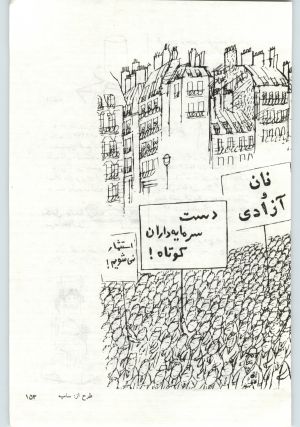 نان
و
آزادی
دست
سرمایه‌داران
کوتاه !
استثمار
نمی‌شویم !
طرح از: سامیه
۱۵۳